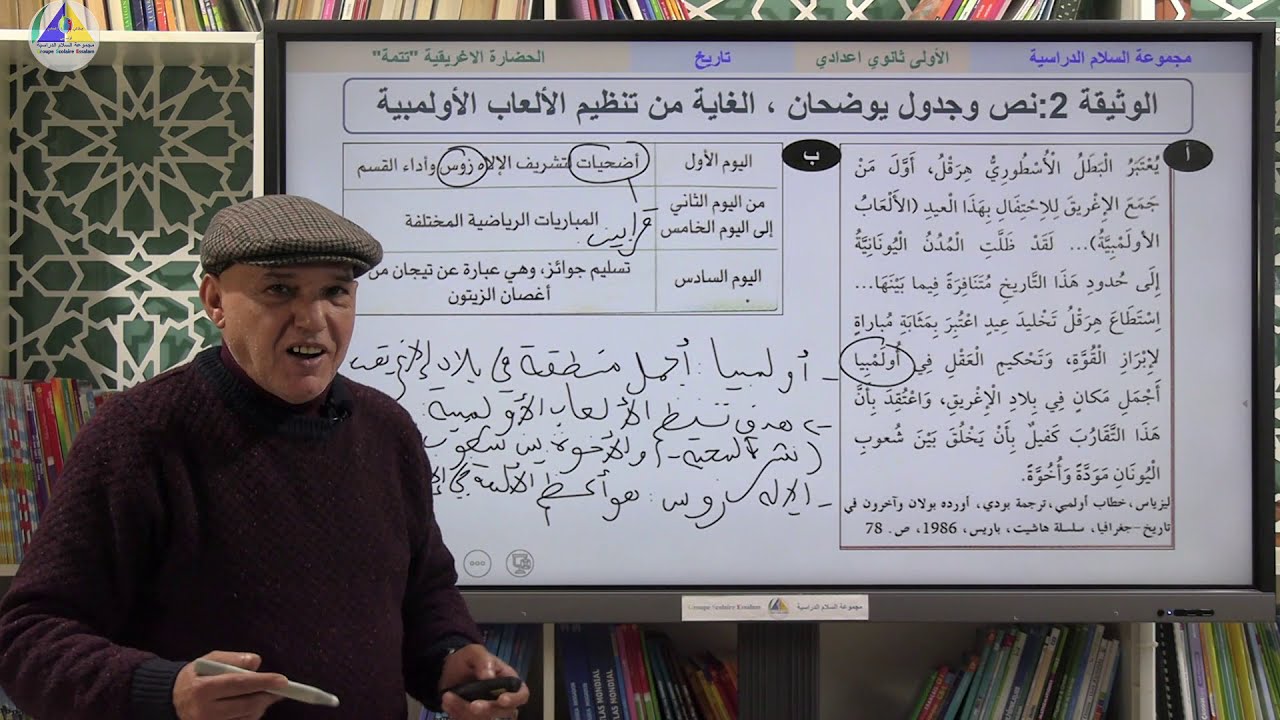 مجموعة السلام الدراسية
Groupe Scolaire Essalam
مجموعة السلام الدراسية
الأولى ثانوي اعدادي
تاريخ
الحضارة الاغريقية "تتمة"
الوثيقة 2:نص وجدول يوضحان ، الغاية من تنظيم الألعاب الأولمبية
أ
يُعْتَبَرُ الْبَطَلُ الْأُسْطُورِيُّ هِرَقْلُ، أَوَّلَ مَنْ
جَمَعَ الإِغْرِيقَ لِلِاحْتِفَالِ بِهَذَا الْعيدِ (الأَلْعَابُ
الأولَمْبِيَّةُ)... لَقَدْ ظَلَّتِ الْمُدُنُ الْيُونَانِيَّةُ
إِلَى حُدودِ هَذَا التَّاريخِ مُتَنَافِرَةً فِيما بَيْنَهَا...
اِسْتَطَاعَ هِرَقْلُ تَخْليدَ عِيدٍ اعْتُبِرَ بِمَثَابَةِ مُباراةٍ
لإِبْرَازِ الْقُوَّةِ، وَتَحْكيمِ الْعَقْلِ فِي أُولَمْبِيا
أَجْمَلِ مَكَانٍ فِي بِلادِ الإِغْريقِ، وَاعْتَقَدَ بِأَنَّ
هَذَا التَّقارُبَ كَفيلٌ بِأَنْ يَخْلُقَ بَيْنَ شُعوبِ
الْيُونَانِ مَوَدَّةً وَأُخُوَّةً.
ليزياس، خطاب أولمبي، ترجمة بودي، أورده بولان وآخرون في
تاريخ-جغرافيا، سلسلة هاشيت، باريس، 1986، ص. 78
ب
اليوم الأول
أضحيات لتشريف الإلاه زوس وأداء القسم
من اليوم الثاني
إلى اليوم الخامس
المباريات الرياضية المختلفة
قرابين
اليوم السادس
تسليم جوائز، وهي عبارة عن تيجان من
أغصان الزيتون
- أولمبيا: أجمل منطقة في بلاد الإغريق
- هدف تنظيم الألعاب الأولمبية:
(نشر المحبة) والأخوة بين شعوب
- الإله زوس: هو أعظم الآلهة في
Groupe Scolaire Essalam
مجموعة السلام الدراسية